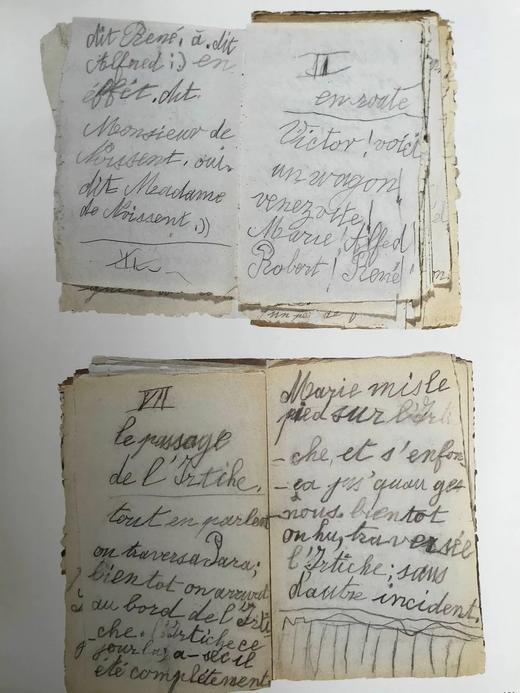 dit René, à, dit
Alfred ;) en
éffét. dit.
Monsieur de
Noissent, oui,
dit Meadame
de Noissent.))
II
en route
Victor! voici
un wagon
venezotte!
Marie! Alffed!
Robert! René!
VII
le passage
de l'Irtihe.
tout en parlent
on traversa Para;
bientot on arrivat
au bord de l'Irti
-che. l'Irtiche ce
jour la, a-sec il
été complétement
Marie mis le
pied sur l'Irti
-che, et s'enfon
-ça jus'quau ge-
nous. bientot
on hu, traversée
l'Irtiche; sans
d'autre incident.